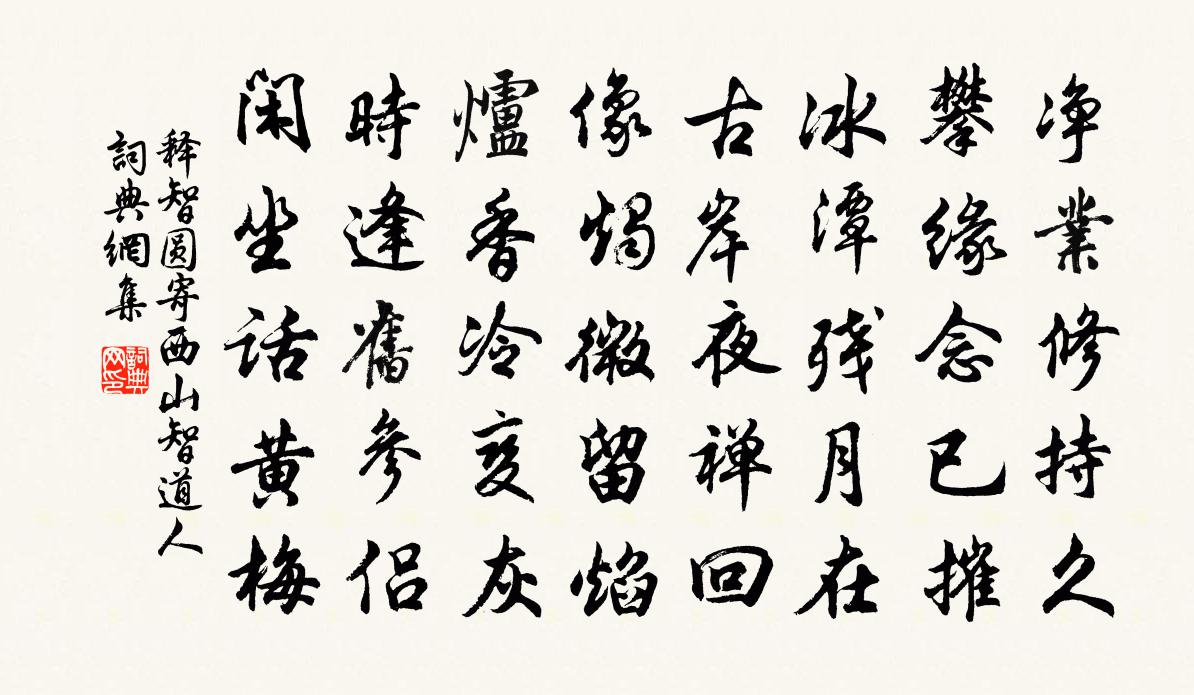 净業修持久
攀緣念已摧
冰潭殘月在
古岸夜禅回
像燭微留焰
爐香冷变灰
時逢舊參侣
閑坐話黄梅
释智圆寄西山智道人
詞典網集
詞典网印